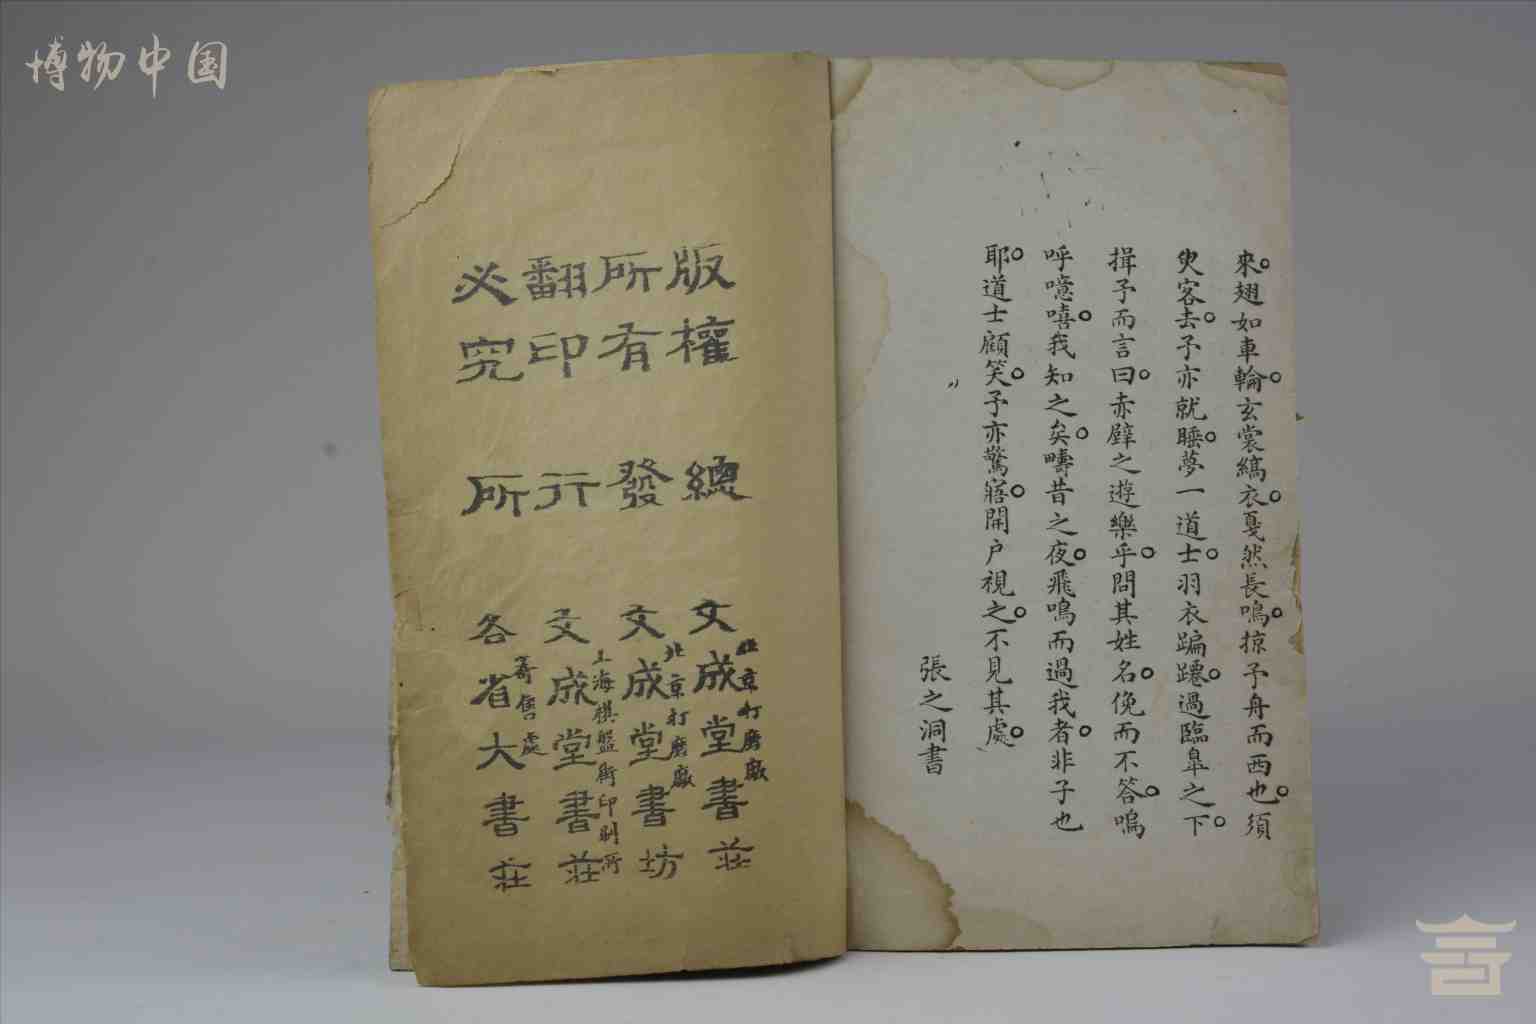 博物中国
來翅如車輪玄裳縞衣戛然長鳴掠予舟而西也須
臾客去予亦就睡夢一道士羽衣蹁躚過臨皐之下
揖予而言曰赤壁之遊樂乎問其姓名俛而不答嗚
呼噫嘻我知之矣疇昔之夜飛鳴而過我者非子也
耶道士顧笑予亦驚寤開户視之不見其處
張之洞書
版權
所有
翻印
必究
總
發
行
所
北京打磨廠
文成堂書莊
北京打磨廠
文成堂書坊
上海棋盤街印刷所
文成堂書莊
寄售處
各省大書莊